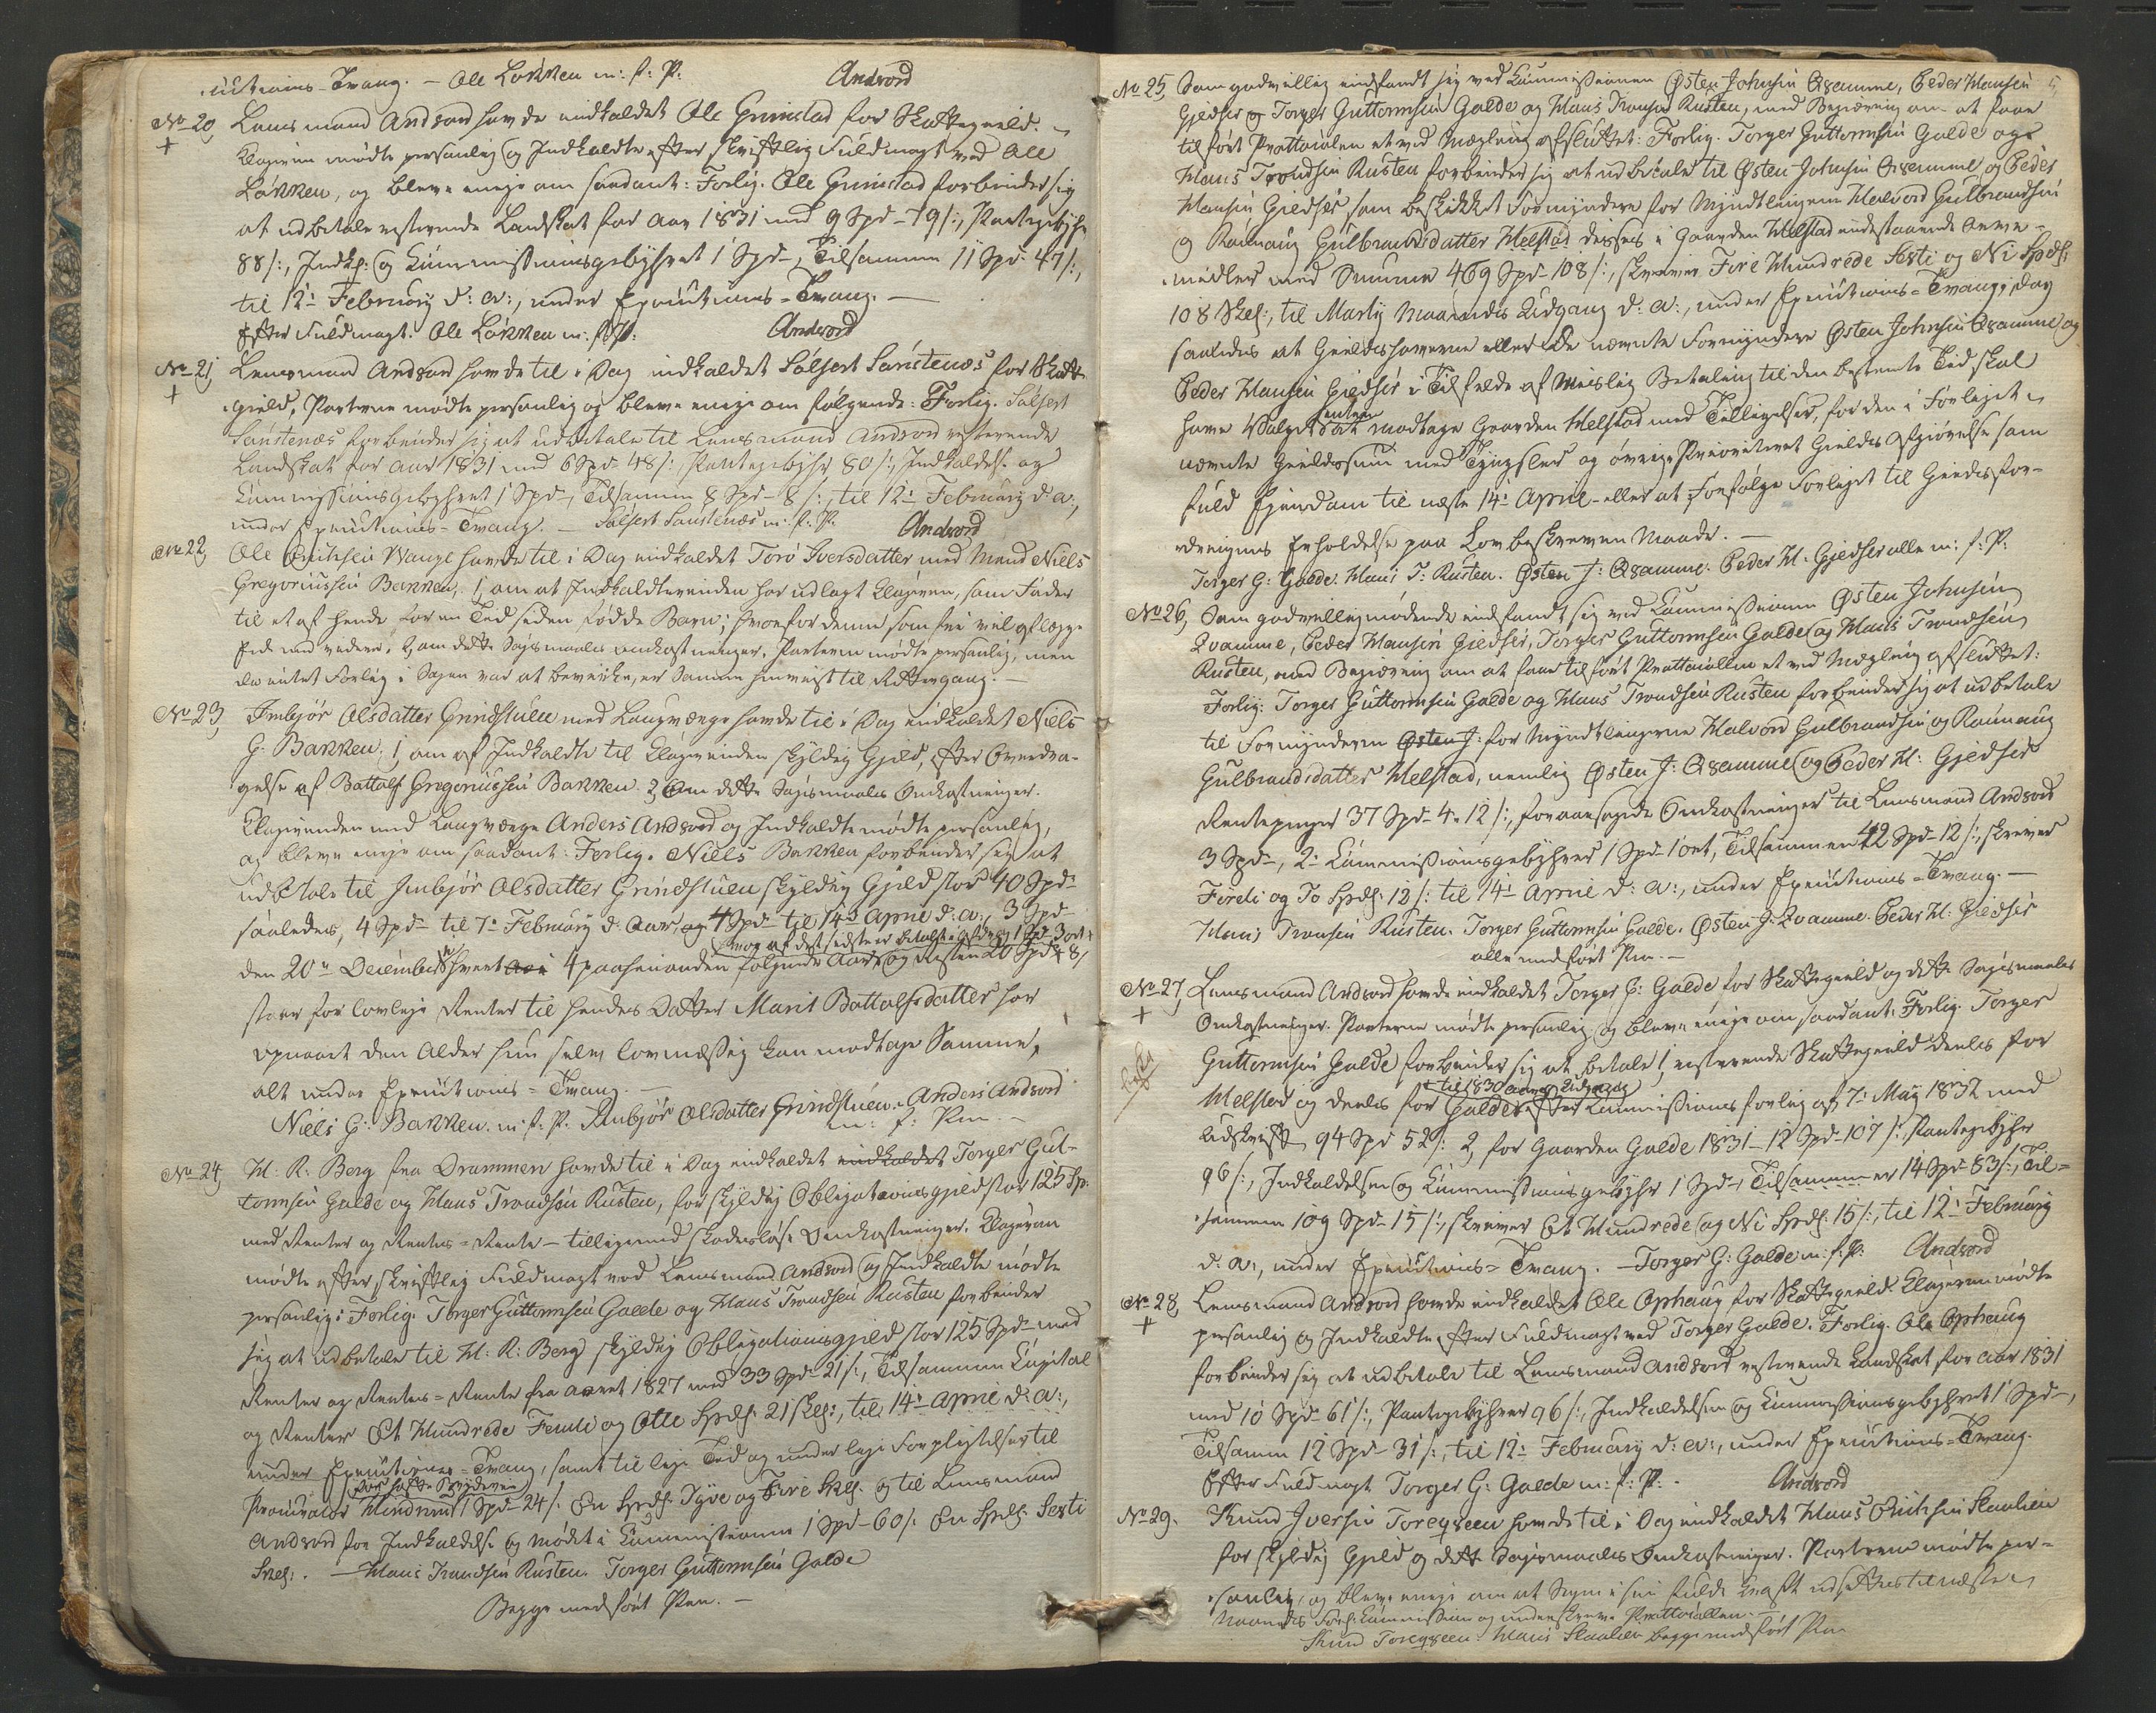 -utions-Tvang. – Ole Løkken m: f: P: Andvord
No 20, Lensmand Andvord havde indkaldet Ole Grimstad for Skattegield.
+ Klageren mødte personlig og Indkaldte efter skriftlig Fuldmagt ved Ole
Løkken, og bleve enige om saadant: Forlig. Ole Grimstad forbinder sig
at udbetale resterende Landskat for Aar 1831 med 9 Spd – 19 /:, Pantegebyhr
88 /:, Indkl: og Commissionsgebyhret 1 Spd –, Tilsammen 11 Spd 47 /:,
til 12te February d: A:, under Execütions-Tvang. –
Efter Fuldmagt. Ole Løkken m: f: P: Andvord
No 21, Lensmand Andvord havde til i Dag indkaldet Sølfert Sanstenæs for Skatte-
+ gield, Parterne mødte personlig og bleve enige om følgende: Forlig. Sølfert
Sanstenæs forbinder sig at udbetale til Lensmand Andvord resterende
Landskat for Aar 1831 med 6 Spd 48 /: Pantegebyhr 80 /:, Indkaldels. og
Commissionsgebyhret 1 Spd –, Tilsammen 8 Spd – 8 /:, til 12te February d: a:,
under Execütions-Tvang. – Sølfert Sanstenæs m: f: P: Andvord
No 22, Ole Erichsen Wange havde til i Dag indkaldet Torø Iversdatter med Mand Niels
Gregoriussen Bakken, 1, om at Indkaldtevinden har udlagt Klageren, som Fader
til et af hende for en Tid siden fødde Barn; hvorfor denne som fri vil aflægge
Eed med videre. 2, om dette Søgsmaals omkostninger. Parterne mødte personlig, men
da intet Forlig i Sagen var at bevirke, er Samme henvist til Rettergang. –
No 23, Imbjør Olsdatter Grindstuen med Laugværge havde til i Dag indkaldet Niels
G. Bakken. 1, om af Indkaldte til Klagerinden skyldig Gield, efter Overdra-
gelse af Battolf Gregoriussen Bakken. 2, Om dette Søgsmaals Omkostninger.
Klagerinden med Laugværge Anders Andvord og Indkaldte mødte personlig,
og bleve enige om saadant: Forlig. Niels Bakken forbinder sig at
udbetale til Imbjør Olsdatter Grindstuen skyldig Gjeld stor 40 Spd
saaledes, 4 Spd – til 7de February d: Aar, og 4 Spd – til 14de April d: a:, 3 Spd –
hvoraf det sidste er betalt i afdrag 1 Spd 3 ort
den 20de December i hvert 4 paahinanden følgende Aar, og Resten 20 Spd 48 /
staar for lovlige Renter til hendes Datter Marit Battolfsdatter har
opnaaet den Alder hun selv lovmæssig kan modtage Samme,
alt under Execütions-Tvang. –
Niels G: Bakken. m: f: P. Imbjør Olsdatter Grindstuen. Anders Andvord
m: f: Pen. –
No 24, H: R: Berg fra Drammen havde til i Dag indkaldet indkaldet Torger Gut-
tormsen Galde og Hans Trondsen Rusten, for skyldig Obligationsgjeld stor 125 Sp:
med Renter og Rentes-Rente – tilligemed skadesløse Omkostninger. Klageren
mødte efter skriftlig Fuldmagt ved Lensmand Andvord og Indkaldte mødte
personlig: Forlig. Torger Guttormsen Galde og Hans Trondsen Rusten forbinder
sig at udbetale til H: R: Berg skyldig Obligationsgjeld stor 125 Spd med
Renter og Rentes-Rente fra Aaret 1827 med 33 Spd – 21 /:, Tilsammen Capital
og Renter Et Hundrede Femti og Otte Spdl: 21 skl:, til 14de April d: a:,
under Execütions-Tvang, samt til lige Tid og under lige Forpligtelser til
for hafte Brydere
Procurator Hindrum 1 Spd – 24 /: En Spdl: Tyve og Fire Skl: og til Lensmand
Andvord for Indkaldels. og mødet i Commissionen 1 Spd – 60 /: En Spdl: Sexti
Skl: . – Hans Trondsen Rusten. Torger Guttormsen Galde
Begge med ført Pen. –
5
No 25, Som godvillig indfandt sig ved Commissionen Østen Johnsen Qvamme, Peder Hansen
Gjedser og Torger Guttormsen Galde og Hans Tronsen Rusten, med Begiæring om at faae
tilført Protocolen et ved Mægling afsluttet: Forlig. Torger Guttormsen Galde og
Hans Trondsen Rusten forbinder sig at udbetale til Østen Johnsen Qvamme og Peder
Hansen Giedser som beskikket Formyndere for Myndtlingerne Halvord Gulbrandsen
og Rannaug Gulbrandsdatter Helstad deres i Gaarden Helstad indestaaende Arve-
midler med Summa 469 Spd – 108 /:, skriver Fire Hundrede Sexti og Ni Spdl:
108 Skl:, til Martij Maaneds Udgang d: a:, under Execütions-Tvang, dog
saaledes at Gieldshaverne eller De nævnte Formyndere Østen Johnsen Qvamme og
Peder Hansen Giedser i Tilfælde af Uvislig Betaling til den bestemte Tid skal
enten
have Valget at modtage Gaarden Helstad med Tilliggelser, for den i Forliget
nævnte Gieldssum med Thingslys og øvrige Prioriteret Gields afgiørelse som
fuld Ejendom til næste 14de April – eller at forfølge Forliget til Gieldsfor-
dringens Erholdelse paa Lovbeskreven Maade. –
Torger G: Galde. Hans T: Rusten. Østen J: Qvamme. Peder H: Gjedser alle m: f: P:
No 26, Som godvillig mødende indfandt sig ved Commissionen Østen Johnsen
Qvamme, Peder Hansen Giedser, Torger Guttormsen Galde og Hans Trondsen
Rusten, med Begiæring om at faae tilført Protocollen et ved Mægling afsluttet:
Forlig: Torger Guttormsen Galde og Hans Trondsen Rusten forbinder sig at udbetale
til Formynderen Østen J: for Myndtlingerne Halvord Gulbrandsen og Rannaug
Gulbrandsdatter Helstad, nemlig Østen J: Qvamme og Peder H: Gjedser
Rentepenger 37 Spd – 4 – 12 /:, foraarsagede Omkostninger til Lensmand Andvord
3 Spd –, 2: Commissionsgebyhrer 1 Spd – 1 ort, Tilsammen 42 Spd – 12 /:, skriver
Fireti og To Spdl: 12 /: til 14de April d: A:, under Execütions-Tvang. –
Hans Tronsen Rusten. Torger Guttormsen Galde. Østen J: Qvamme. Peder H: Giedser
alle med ført Pen. –
No 27, Lensmand Andvord havde indkaldet Torger G: Galde for Skattegield og dette Søgsmaals
+ Omkostninger. Parterne mødte personlig og bleve enige om saadant: Forlig. Torger
Guttormsen Galde forbinder sig at betale 1, resterende Skattegield deels for
+ til 1830 Aars Udgang
Helstad og deels for Galde efter Commissions forlig af 7de May 1832 med
Udskrift 94 Spd 52 /: 2, for Gaarden Galde 1831 – 12 Spd – 107 /: Pantegebyhr
96 /:, Indkaldelsen og Commissionsgebyhr 1 Spd –, Tilsammen er 14 Spd – 83 /:, Til-
sammen 109 Spd – 15 /:, skriver Et Hundrede og Ni Spdl: 15 /:, til 12te February
d: A:, under Execütions-Tvang. – Torger G: Galde m: f: P: Andvord
No 28, Lensmand Andvord havde indkaldet Ole Ophaug for Skattegield. Klageren mødte
+ personlig og Indkaldte efter Fuldmagt ved Torger Galde. Forlig. Ole Ophaug
forbinder sig at udbetale til Lensmand Andvord resterende Landskat for Aar 1831
med 10 Spd 61 /:, Pantegebyhrer 96 /:, Indkaldelsen og Commissionsgebyhret 1 Spd –,
Tilsamm 12 Spd – 31 /:, til 12te February d: A:, under Execütions-Tvang.
Efter Fuldmagt Torger G: Galde m: f: P: . Andvord
No 29. Knud Iversen Toreqveen havde til i Dag indkaldet Hans Erichsen Slaalien
for skyldig Gjeld og dette Søgsmaals Omkostninger. Parterne mødte per-
sonlig, og bleve enige om at Sagen i sin fulde Kraft udsættes til næste
Maaneds Forl: Commission og underskreve Protocollen. –
Knud Toreqveen. Hans Slaalien begge med ført Pen